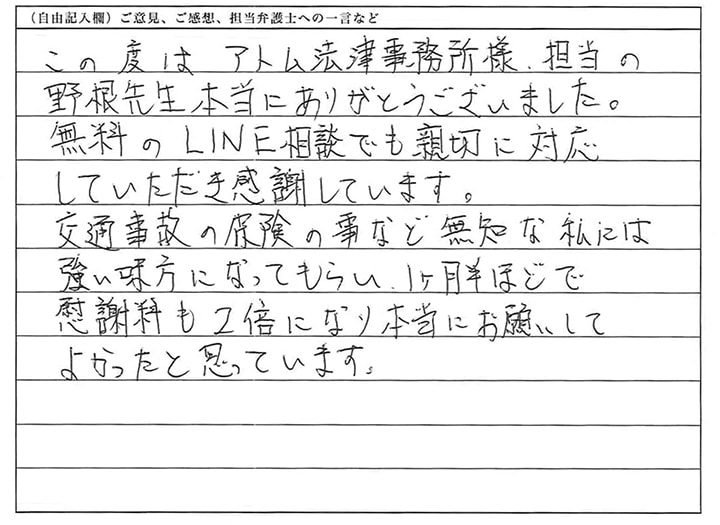 （自由記入欄）ご意見、ご感想、担当弁護士への一言など
この度は アトム法律事務所様、担当の
野根先生本当にありがとうございました。
無料のLINE相談でも親切に対応
していただき感謝しています。
交通事故の保険の事など無知な私には
強い味方になってもらい、1ヶ月半ほどで
慰謝料も2倍になり本当にお願いして
よかったと思っています。